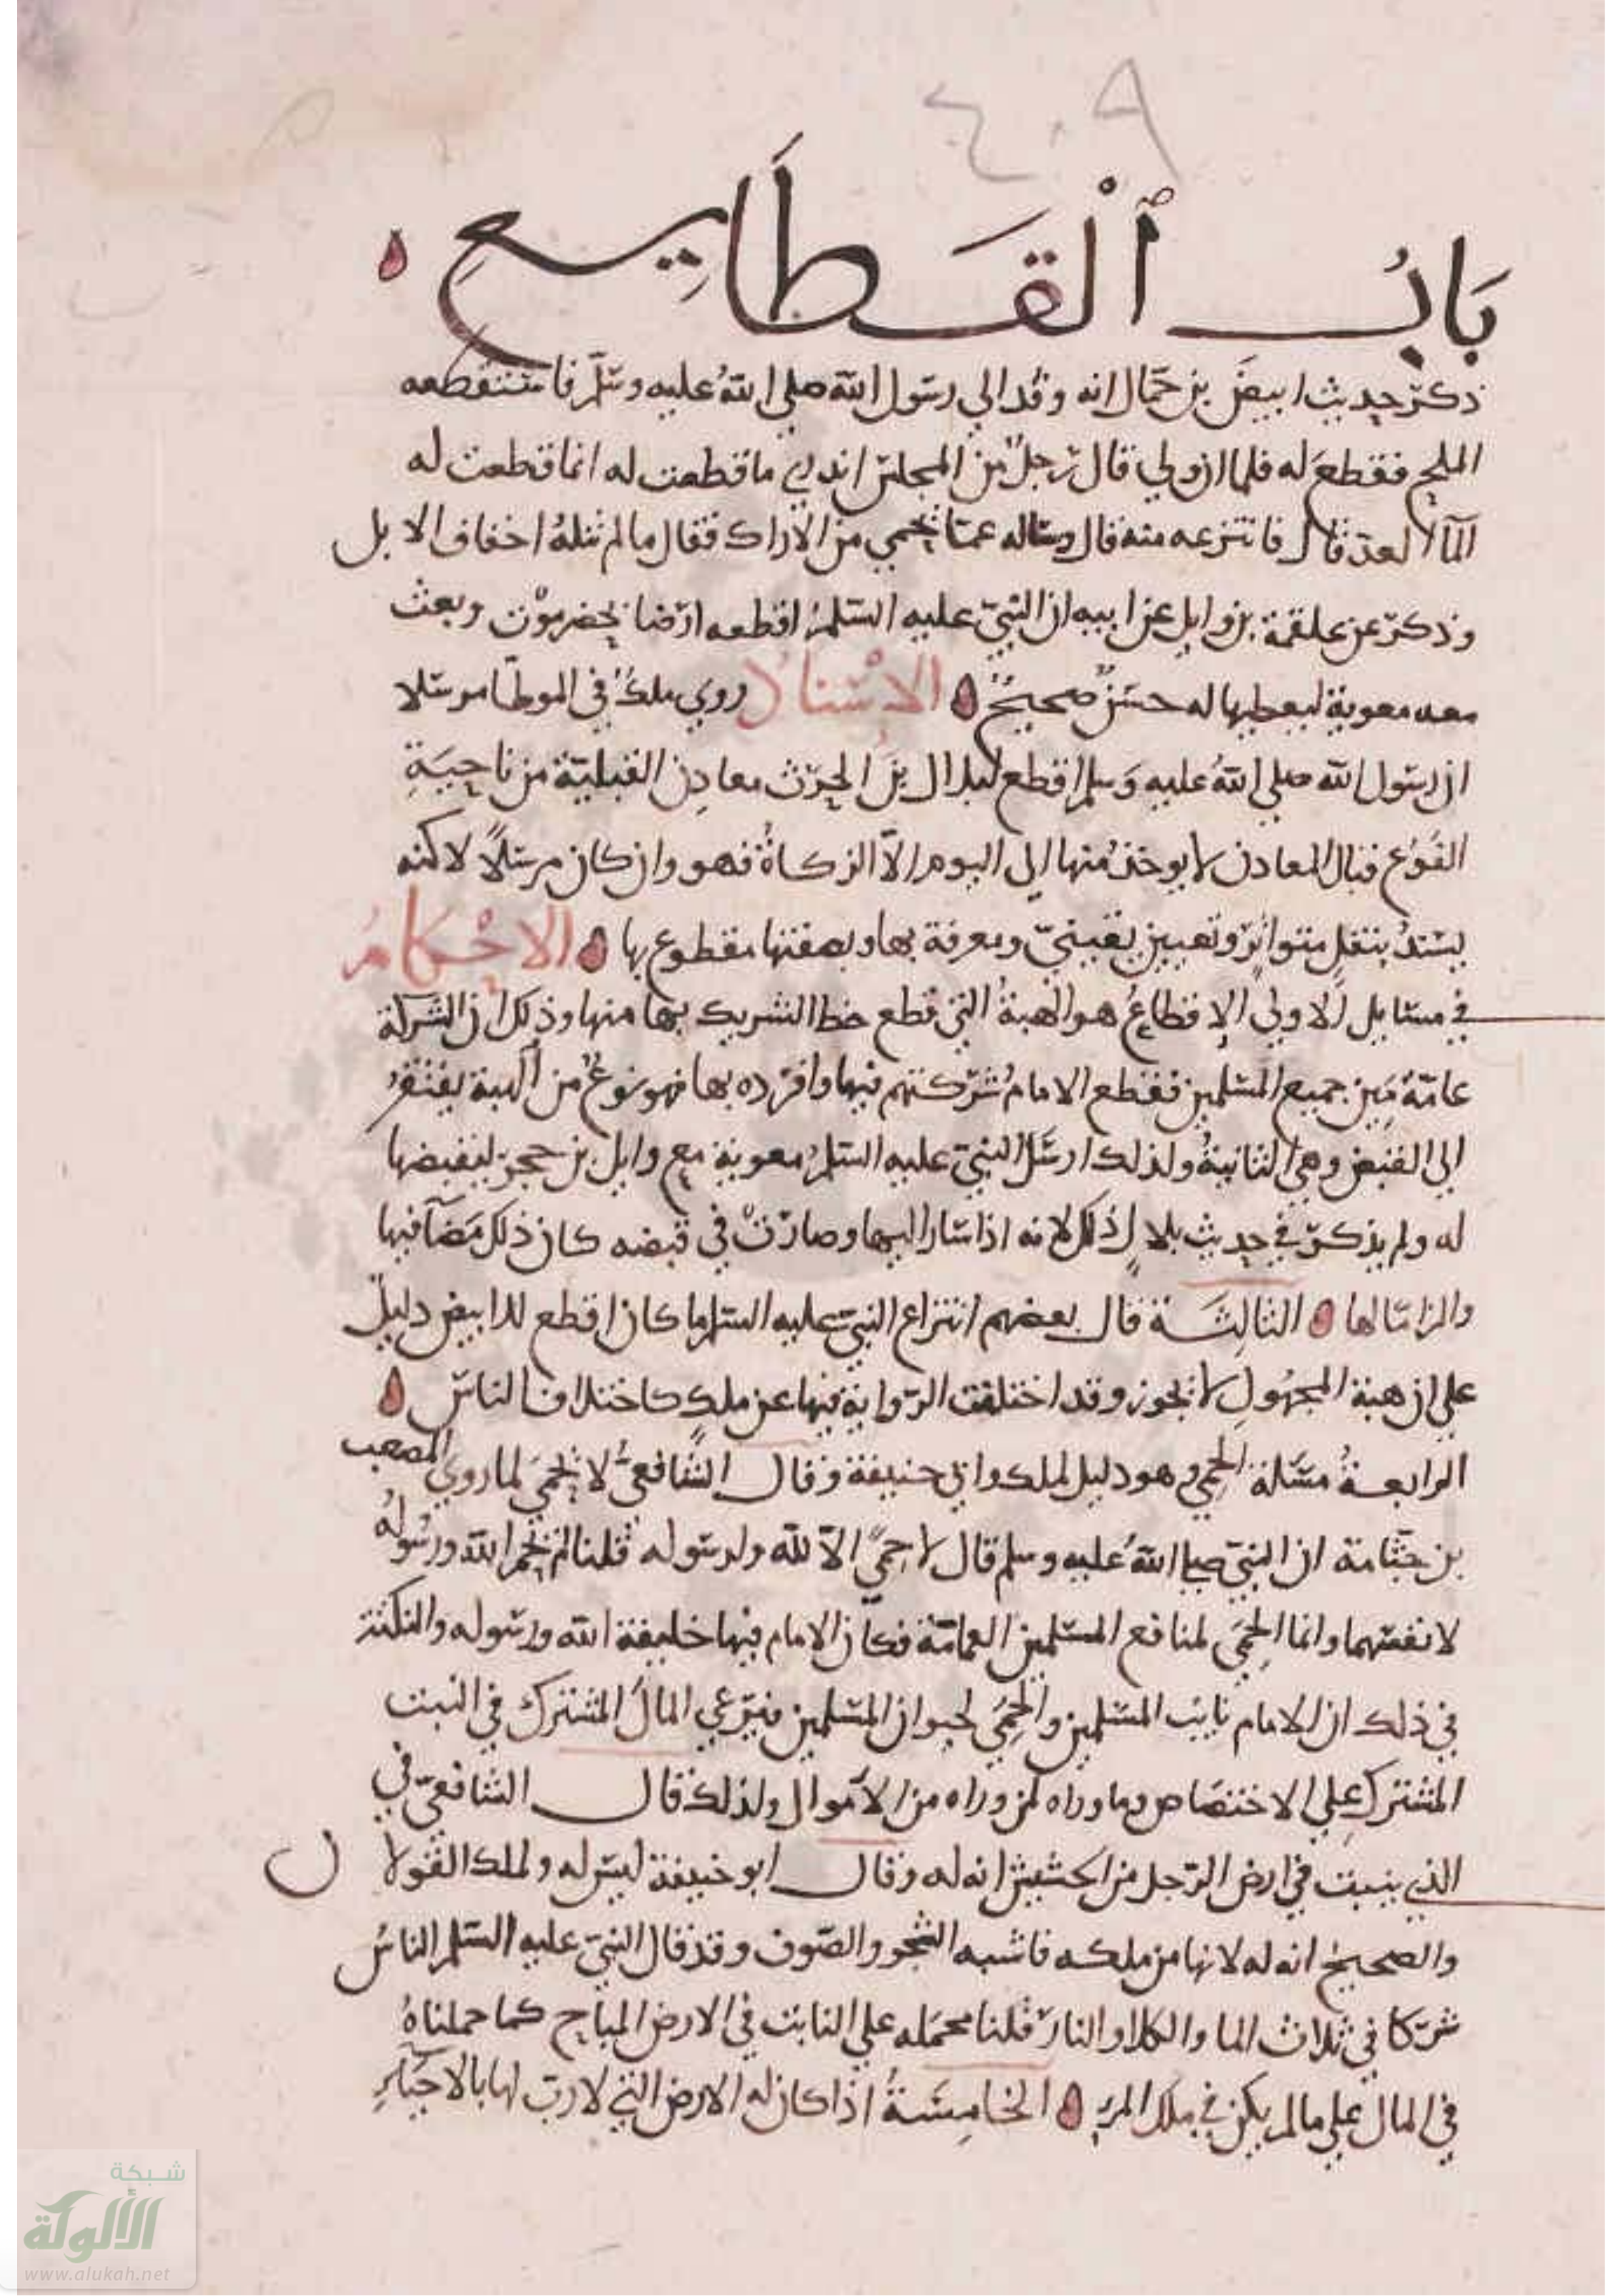 ٤٠٩
بَابُ ٱلْقَطَايِعِ
ذكر حديث ابيض بن حمال انه وفد الي رسول الله صلي الله عليه وسلم فاستقطعه
الملح فقطع له فلما ان ولي قال رجل من المجلس اتدري ما قطعت له انما قطعت له
الما العد قال فانتزعه منه قال وساله عما يحمي من الاراك فقال ما لم تنله اخفاف الابل
وذكر عن علقمة بن وايل عن ابيه ان النبي عليه السلم اقطعه ارضا بحضرموت وبعث
معه معوية ليعطيها له حسن صحيح الاسناد روي ملك في الموطا مرسلا
ان رسول الله صلي الله عليه وسلم اقطع لبلال بن الحرث معادن القبلية من ناحية
الفرع فتلك المعادن لا يوخذ منها الي اليوم الا الزكاة فهو وان كان مرسلا لاكنه
يسند بنقل متواتر وتعيين يقيني ومعرفة بها وبصفتها مقطوع بها الاحكام
في مسايل الاولي الاقطاع هو الهبة التي قطع حظ الشريك بها منها وذلك ان الشركة
عامة بين جميع المسلمين فقطع الامام شركتهم فيها وافرده بها فهو نوع من الهبة يفتقر
الي القبض وهي الثانية ولذلك ارسل النبي عليه السلم معوية مع وايل بن حجر ليقبضها
له ولم يذكر في حديث بلال ذلك لانه اذا سار اليها وصارت في قبضه كان ذلك مضا فيها
والزاما لها الثالثة قال بعضهم انتزاع النبي عليه السلم ما كان اقطع للابيض دليل
علي ان هبة المجهول لا تجوز وقد اختلفت الرواية فيها عن ملك كاختلاف الناس
الرابعة مسلة الحمي وهو دليل لملك وابي حنيفة وقال الشافعي لا يحمي لما روي الصعب
بن جثامة ان النبي صلي الله عليه وسلم قال لا حمي الا لله ولرسوله قلنا لم يحم الله ورسوله
لانفسهما وانما الحمي لمنافع المسلمين العامة فكان الامام فيها خليفة الله ورسوله والنكتة
في ذلك ان الامام نايب المسلمين والحمي لحيوان المسلمين فيرعي المال المشترك في النبت
المشترك علي الاختصاص وما وراه لمن وراه من الاموال ولذلك قال الشافعي في
الذي ينبت في ارض الرجل من الحشيش انه له وقال ابو حنيفة ليس له ولملك القولان
والصحيح انه له لانها من ملكه فاشبه الشجر والصوف وقد قال النبي عليه السلم الناس
شركا في ثلاث الما والكلا والنار قلنا محمله علي النابت في الارض المباح كما حملناه
في المال علي ما لم يكن في ملك المرء الخامسة اذا كان له الارض التي لا رب لها بالاحياء
شبكة
الألوكة
www.alukah.net